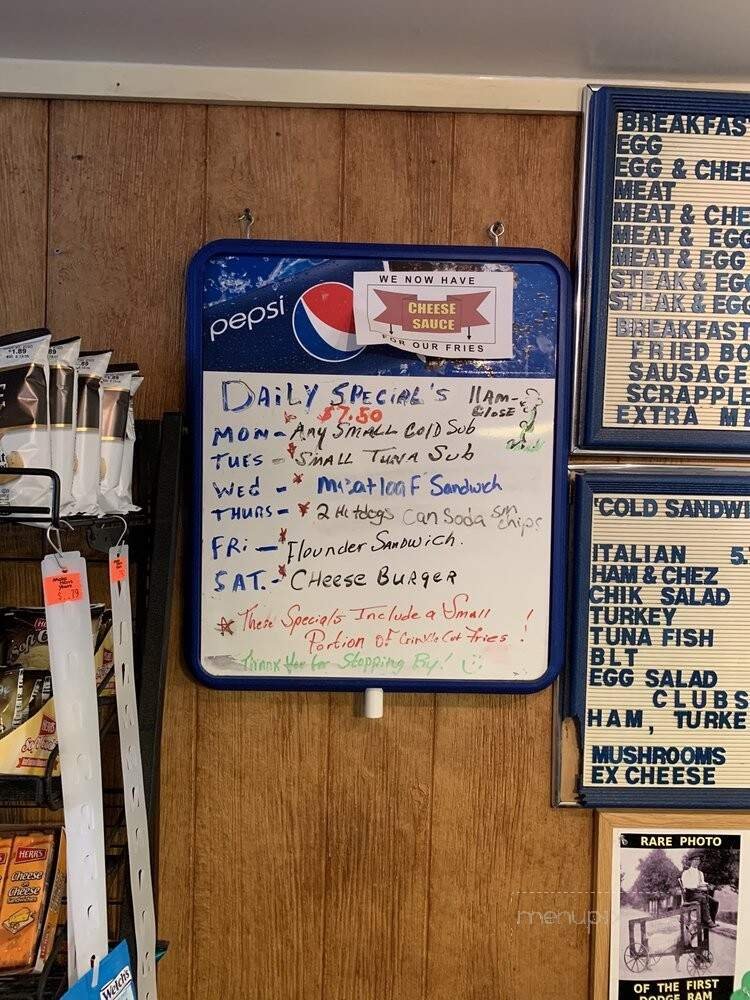 pepsi
WE NOW HAVE
CHEESE
SAUCE
FOR OUR FRIES
DAILY SPECIAL'S 11AM-
CLOSE
$7.50
MON - ANY SMALL COLD SUB
TUES - *SMALL TUNA SUB
WED - * Meatloaf Sandwich
THURS - * 2 Hotdogs Can Soda sm chips
FRi - *Flounder SANDWICH.
SAT. - *CHeese BURGER
* These Specials Include a Small
Portion OF Crinkle Cut Fries !
Thank You for Stopping By!
BREAKFAS
EGG
EGG & CHEE
MEAT
MEAT & CHE
MEAT & EGG
MEAT & EGG
STEAK & EGG
STEAK & EGG
BREAKFAST
FRIED BO
SAUSAGE
SCRAPPLE
EXTRA ME
COLD SANDWI
ITALIAN 5.
HAM & CHEZ
CHIK SALAD
TURKEY
TUNA FISH
BLT
EGG SALAD
CLUBS
HAM, TURKE
MUSHROOMS
EX CHEESE
RARE PHOTO
OF THE FIRST
DODGE RAM
$1.89
HERR'S
Cheese
Cheese
Welch's
menupix